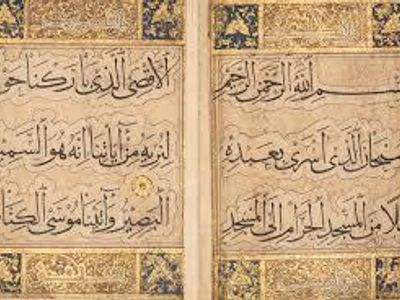 سم ٱللَّهِ ٱلرَّحْمَٰنِ ٱلرَّحِيمِ
سبحان الَّذِي أَسْرَى بِعَبْدِهِ
لا مِنَ الْمَسْجِدِ الْحَرَامِ إِلَى الْمَسْجِدِ
الْأَقْصَى الَّذِي بَارَكْنَا حو
لِنُرِيَهُ مِنْ آيَاتِنَا إِنَّهُ هُوَ السَّمِيـ
الْبَصِيرُ وَآتَيْنَا مُوسَى الْكِتَا